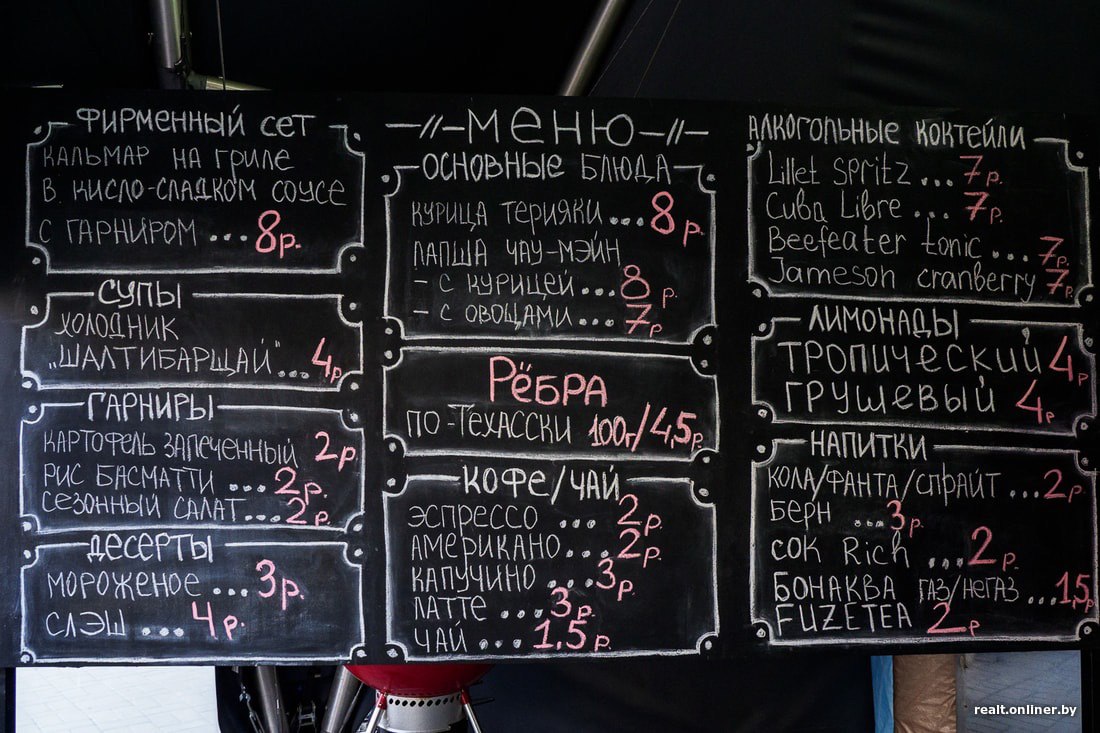 ФИРМЕННЫЙ СЕТ
КАЛЬМАР НА ГРИЛЕ
В КИСЛО-СЛАДКОМ СОУСЕ
С ГАРНИРОМ ... 8р.
СУПЫ
ХОЛОДНИК
„ШАЛТИБАРЩАЙ" ... 4р
ГАРНИРЫ
КАРТОФЕЛЬ ЗАПЕЧЕННЫЙ 2р
РИС БАСМАТТИ ... 2р.
СЕЗОННЫЙ САЛАТ... 2р.
ДЕСЕРТЫ
МОРОЖЕНОЕ ... 3р.
СЛЭШ ... 4р.
—//—МЕНЮ—//—
ОСНОВНЫЕ БЛЮДА
КУРИЦА ТЕРИЯКИ ... 8р.
ЛАПША ЧАУ-МЭЙН
- С КУРИЦЕЙ ... 8р.
- С ОВОЩАМИ ... 7р
РЁБРА
ПО-ТЕХАССКИ 100г/4,5р.
КОФЕ/ЧАЙ
ЭСПРЕССО ... 2р.
АМЕРИКАНО ... 2р.
КАПУЧИНО ... 3р
ЛАТТЕ ... 3р.
ЧАЙ ... 1.5р.
АЛКОГОЛЬНЫЕ КОКТЕЙЛИ
Lillet Spritz ... 7р.
Cuba Libre ... 7р.
Beefeater tonic ... 7р.
Jameson cranberry 7р.
ЛИМОНАДЫ
ТРОПИЧЕСКИЙ 4р
ГРУШЕВЫЙ 4р
НАПИТКИ
КОЛА/ФАНТА/СПРАЙТ ... 2р.
БЕРН ... 3р.
СОК Rich ... 2р.
БОНАКВА ГАЗ/НЕГАЗ ... 1,5р.
FUZETEA 2р
realt.onliner.by